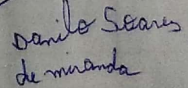 Danilo Soares
de miranda